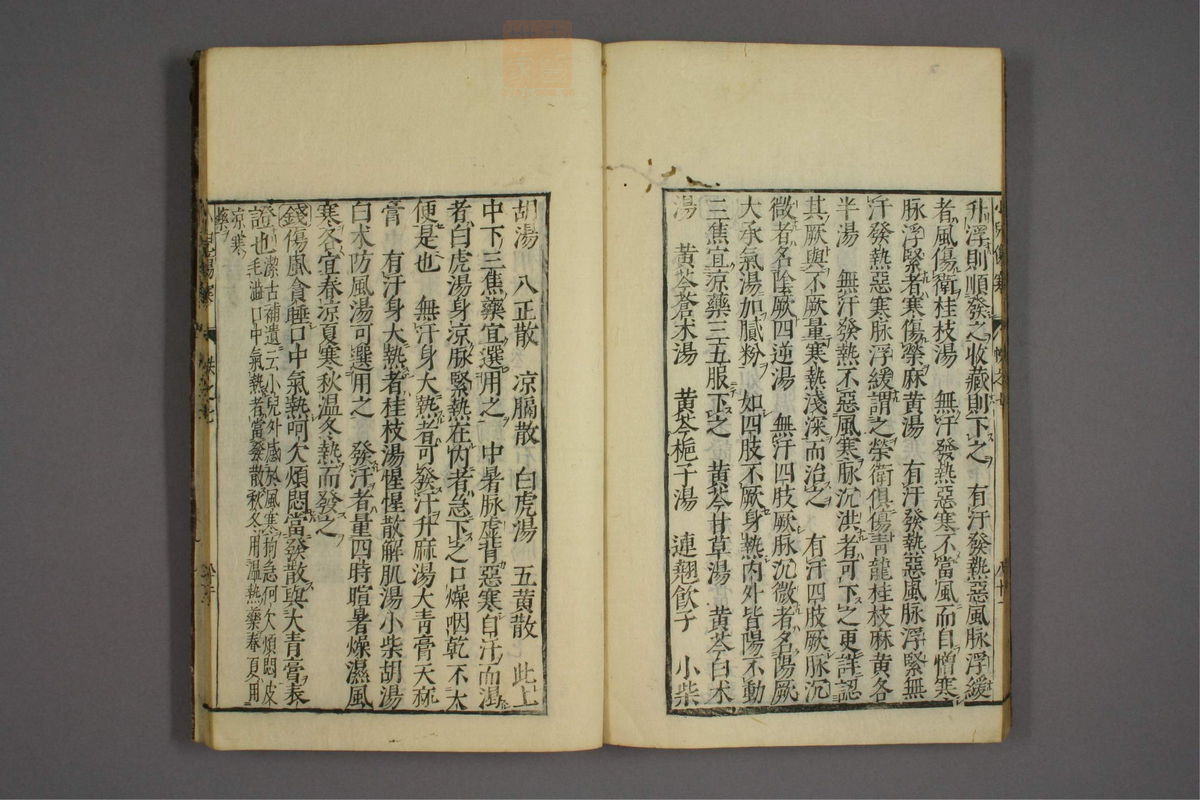 升浮則順發之收藏則下之 有汗發熱惡風脉浮緩
者風傷衛桂枝湯 無汗發熱惡寒不當風而自憎寒
脉浮緊者寒傷榮麻黄湯 有汗發熱惡風脉浮緊無
汗發熱惡寒脉浮緩謂之榮衛俱傷青龍桂枝麻黄各
半湯 無汗發熱不惡風寒脉沉洪者可下之更詳認
其厥與不厥量寒熱淺深而治之 有汗四肢厥脉沉
微者名陰厥四逆湯 無汗四肢厥脉沉微者名陽厥
大承氣湯加膩粉 如四肢不厥身熱内外皆陽不動
三焦宜凉藥三五服下之 黄芩甘草湯 黄芩白术
湯 黄芩蒼术湯 黄芩梔子湯 連翹飲子 小柴
胡湯 八正散 凉膈散 白虎湯 五黄散 此上
中下三焦藥宜選用之 中暑脉虚背惡寒自汗而渴
者白虎湯身凉脉緊熱在内者急下之口燥咽乾不大
便是也 無汗身大熱者可發汗升麻湯大青膏天麻
膏 有汗身大熱者桂枝湯惺惺散解肌湯小柴胡湯
白术防風湯可選用之 發汗者量四時暄暑燥濕風
寒冬宜春凉夏寒秋温冬熱而發之
錢傷風貪睡口中氣熱呵欠煩悶當發散與大青膏表
證也潔古補遺云小兒外感於風寒拘急呵欠煩悶皮
毛澁口中氣熱者當發散秋冬用温熱藥春夏用
凉寒
藥
小兒傷寒 帙之七